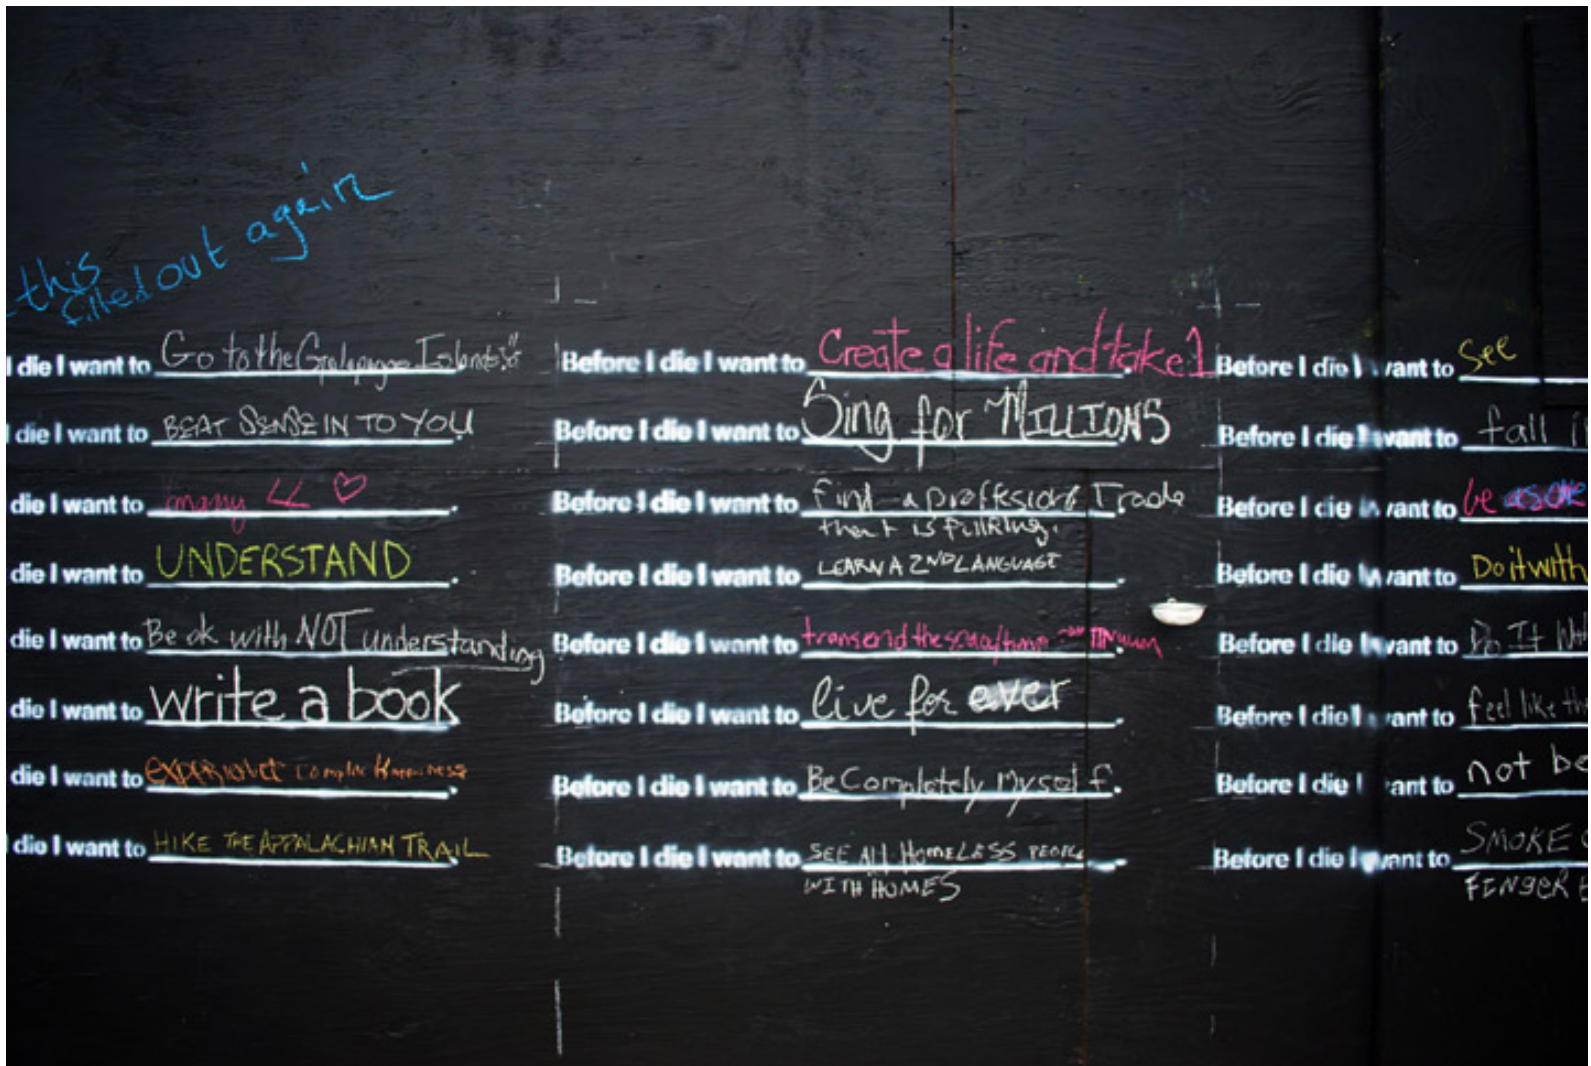 this
filled out again
I die I want to Go to the Galapagos Islands!
I die I want to BEAT SENSE IN TO YOU.
die I want to marry LL ♡.
die I want to UNDERSTAND.
die I want to Be ok with NOT understanding
die I want to write a book
die I want to experience complete Happiness.
die I want to HIKE THE APPALACHIAN TRAIL.
Before I die I want to Create a life and take 1.
Before I die I want to Sing for MILLIONS
Before I die I want to find a proffesion & Trade.
that is fullfilling.
Before I die I want to LEARN A 2ND LANGUAGE.
Before I die I want to transend the time.
Before I die I want to live for ever.
Before I die I want to Be Completely Myself.
Before I die I want to SEE All HOMELESS PEOPLE.
WITH HOMES
Before I die I want to See
Before I die I want to fall i
Before I die I want to be as one
Before I die I want to Do it with
Before I die I want to Do It
Before I die I want to feel like th
Before I die I want to not be
Before I die I want to SMOKE
FINGER